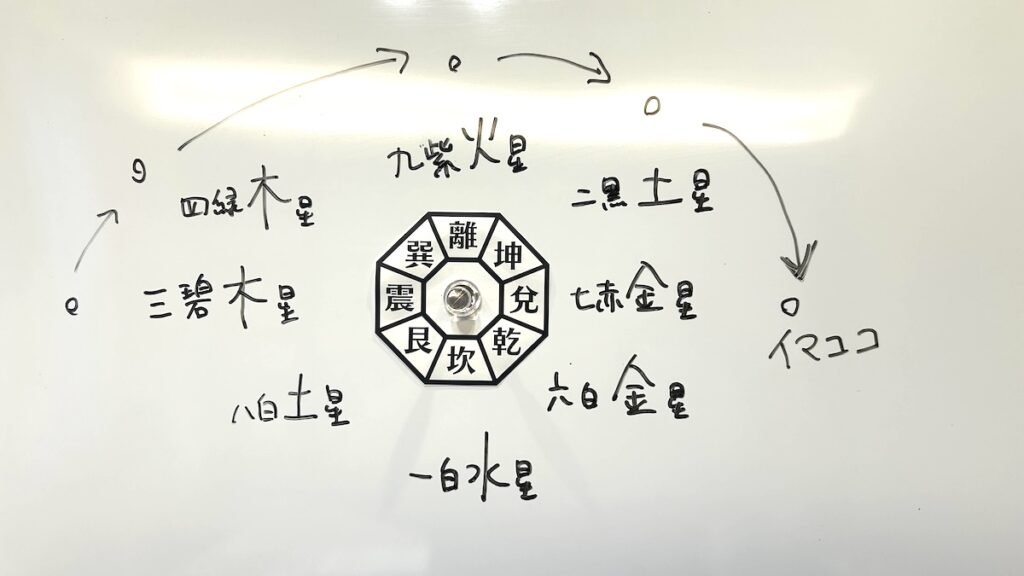 九紫火星
四緑木星
二黒土星
離
巽
坤
三碧木星
震
兌
七赤金星
イマココ
艮
乾
坎
八白土星
六白金星
一白水星